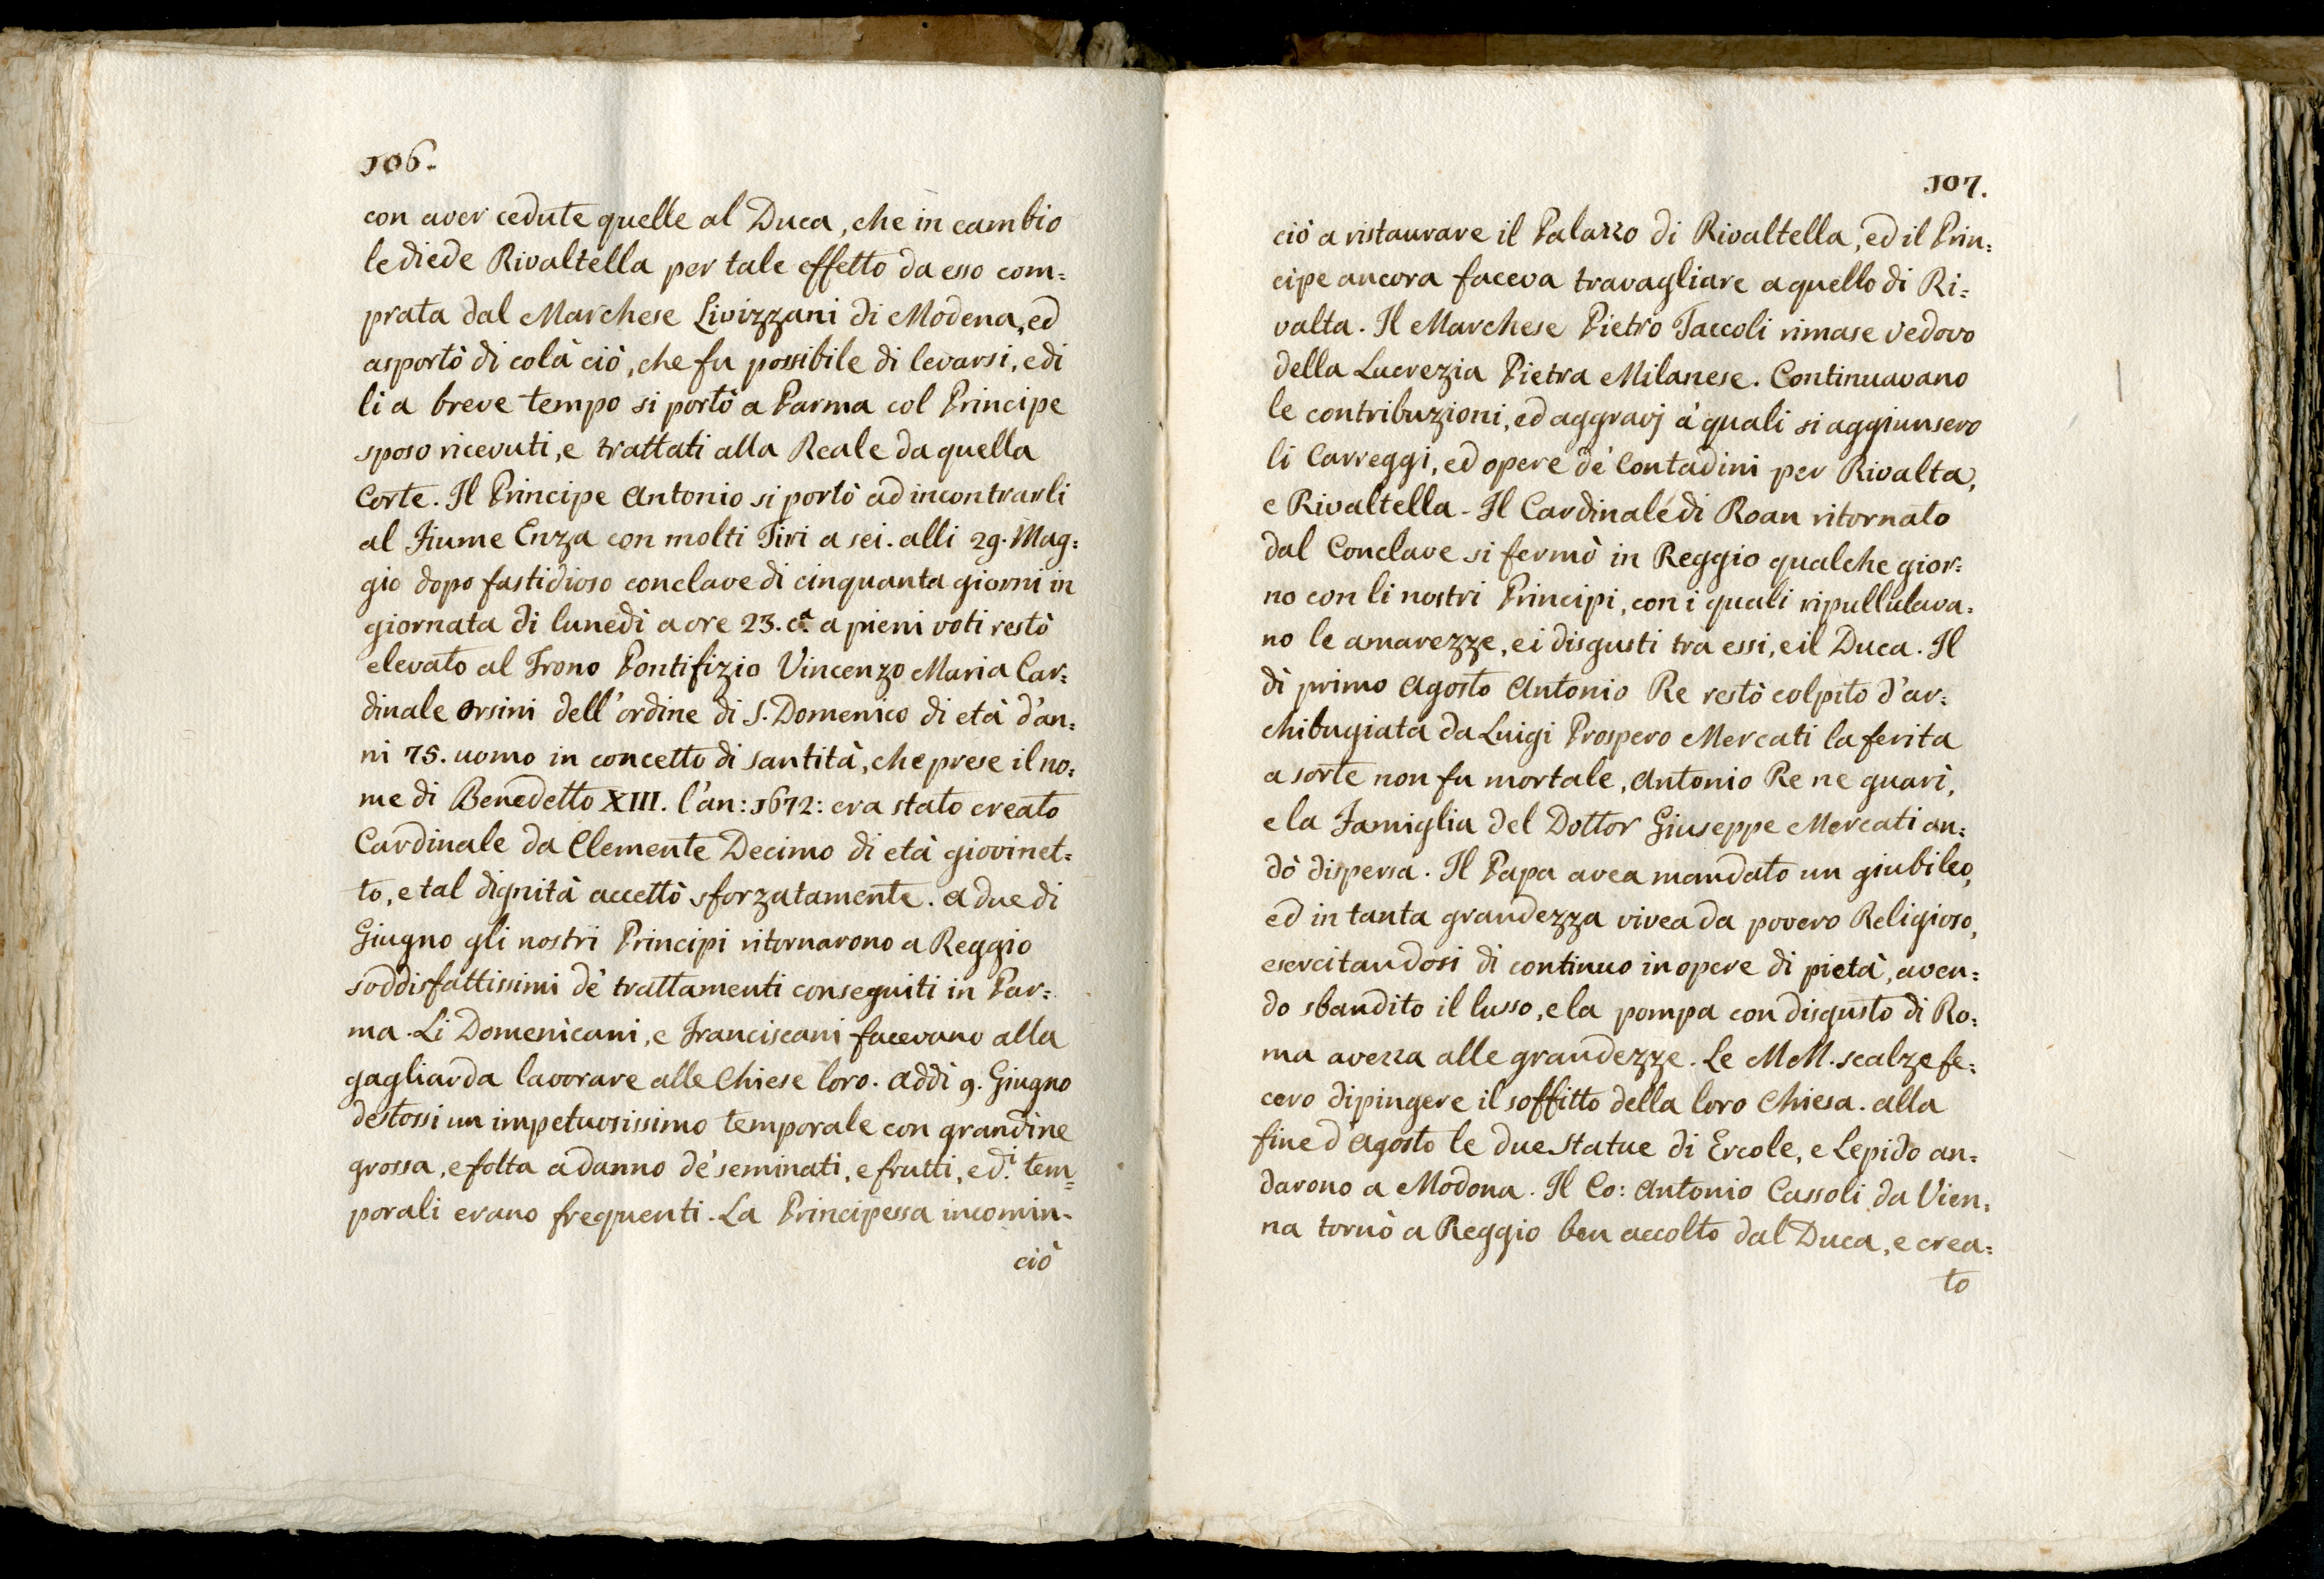 106.
con aver cedute quelle al Duca, che in cambio
le diede Rivaltella per tale effetto da esso com=
prata dal Marchese Livizzani di Modena, ed
asportò di colà ciò, che fu possibile di levarsi, e di
li a breve tempo si portò a Parma col Principe
sposo ricevuti, e trattati alla Reale da quella
Corte. Il Principe Antonio si portò ad incontrarli
al Fiume Enza con molti Tiri a sei. alli 29. Mag=
gio dopo fastidioso conclave di cinquanta giorni in
giornata di lunedì a ore 23. cᵃ. a pieni voti restò
elevato al Trono Pontifizio Vincenzo Maria Car=
dinale Orsini dell' ordine di S. Domenico di età d'an=
ni 75. uomo in concetto di santità, che prese il no=
me di Benedetto XIII. l'an: 1672: era stato creato
Cardinale da Clemente Decimo di età giovinet=
to, e tal dignità accettò sforzatamente. A due di
Giugno gli nostri Principi ritornarono a Reggio
soddisfattissimi de' trattamenti conseguiti in Par=
ma. Li Domenicani, e Franciscani facevano alla
gagliarda lavorare alle Chiese loro. Addì 9. Giugno
destossi un impetuosissimo temporale con grandine
grossa, e folta a danno de' seminati, e frutti, e d.ⁱ tem=
porali erano frequenti. La Principessa incomin-
ciò
107.
ciò a ristaurare il Palazzo di Rivaltella, ed il Prin=
cipe ancora faceva travagliare a quello di Ri=
valta. Il Marchese Pietro Taccoli rimase vedovo
della Lucrezia Pietra Milanese. Continuavano
le contribuzioni, ed aggravj a' quali si aggiunsero
li Carreggi, ed opere de' Contadini per Rivalta,
e Rivaltella. Il Cardinale di Roan ritornato
dal Conclave si fermò in Reggio qualche gior=
no con li nostri Principi, con i quali ripullulava=
no le amarezze, e i disgusti tra essi, e il Duca. Il
dì primo Agosto Antonio Re restò colpito d'ar=
chibugiata da Luigi Prospero Mercati la ferita
a sorte non fu mortale, Antonio Re ne guarì,
e la Famiglia del Dottor Giuseppe Mercati an=
dò dispersa. Il Papa avea mandato un giubileo,
ed in tanta grandezza vivea da povero Religioso,
esercitandosi di continuo in opere di pietà, aven=
do sbandito il lusso, e la pompa con disgusto di Ro=
ma avezza alle grandezze. Le M M. scalze fe=
cero dipingere il soffitto della loro Chiesa. alla
fine d'Agosto le due statue di Ercole, e Lepido an=
darono a Modona. Il Co: Antonio Cassoli da Vien=
na tornò a Reggio ben accolto dal Duca, e crea=
to